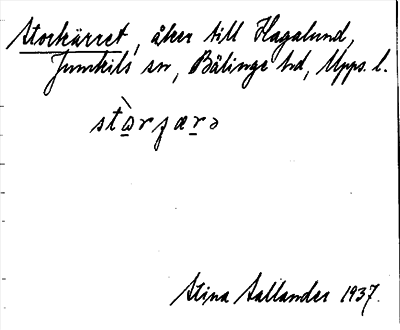 Storkärret, åker till Hagalund,
Jumkils sn, Bälinge hd, Upps. l.
stòrʃærə
Stina Sallander 1937.